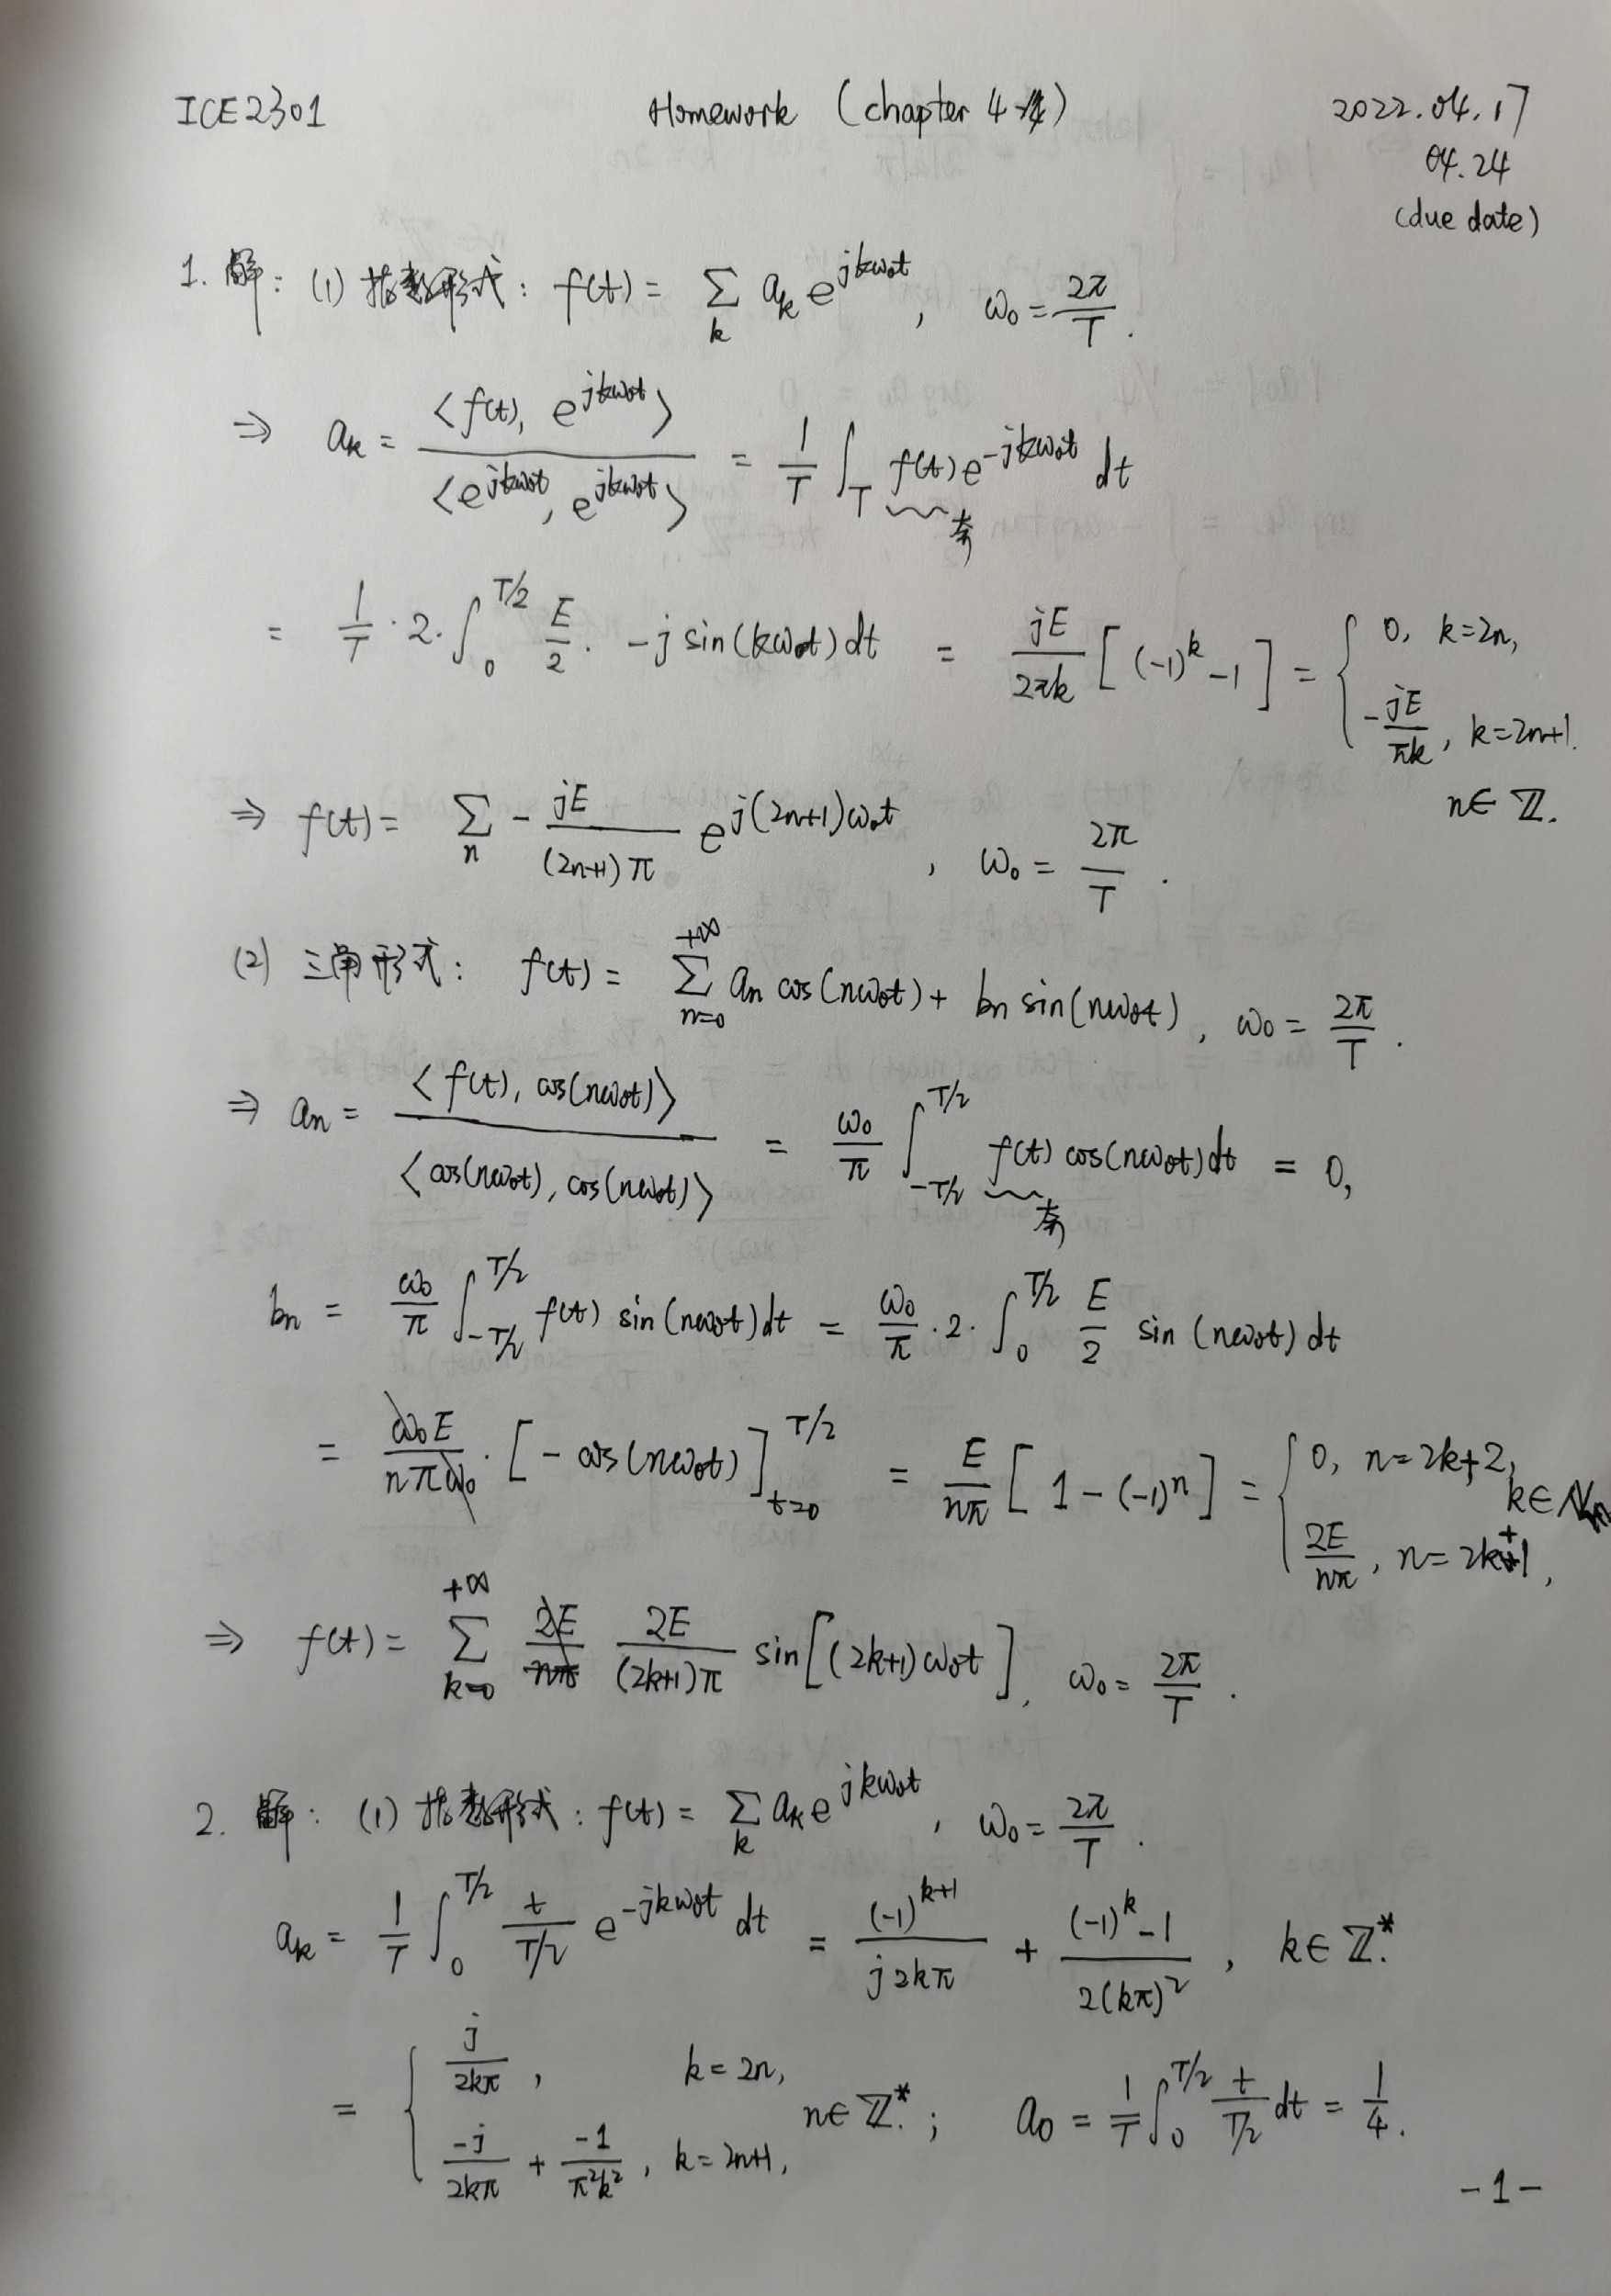 ICE2301 Homework (chapter 4) 2022.04.17
04.24
(due date)
1. 解: (1) 指数形式: f(t) = ∑_k a_k e^{jkω₀t}, ω₀ = 2π/T.
⇒ a_k = <f(t), e^{jkω₀t}> / <e^{jkω₀t}, e^{jkω₀t}> = 1/T ∫_T f(t) e^{-jkω₀t} dt
奇
= 1/T · 2 · ∫_0^{T/2} E/2 · -j sin(kω₀t) dt = jE/(2πk) [(-1)^k - 1] = { 0, k=2n, -jE/(πk), k=2n+1.
n∈ℤ.
⇒ f(t) = ∑_n - jE/((2n+1)π) e^{j(2n+1)ω₀t}, ω₀ = 2π/T.
(2) 三角形式: f(t) = ∑_{n=0}^{+∞} a_n cos(nω₀t) + b_n sin(nω₀t), ω₀ = 2π/T.
⇒ a_n = <f(t), cos(nω₀t)> / <cos(nω₀t), cos(nω₀t)> = ω₀/π ∫_{-T/2}^{T/2} f(t) cos(nω₀t) dt = 0,
奇
b_n = ω₀/π ∫_{-T/2}^{T/2} f(t) sin(nω₀t) dt = ω₀/π · 2 · ∫_0^{T/2} E/2 sin(nω₀t) dt
= ω₀E/(nπω₀) · [-cos(nω₀t)]_{t=0}^{T/2} = E/(nπ) [1 - (-1)^n] = { 0, n=2k+2, 2E/(nπ), n=2k+1, k∈
⇒ f(t) = ∑_{k=0}^{+∞} 2E/((2k+1)π) sin[(2k+1)ω₀t], ω₀ = 2π/T.
2. 解: (1) 指数形式: f(t) = ∑_k a_k e^{jkω₀t}, ω₀ = 2π/T.
a_k = 1/T ∫_0^{T/2} t/(T/2) e^{-jkω₀t} dt = (-1)^{k+1}/(j2kπ) + ((-1)^k - 1)/(2(kπ)²), k∈ℤ*.
= { j/(2kπ), k=2n, -j/(2kπ) + -1/(π²k²), k=2n+1, n∈ℤ*.; a_0 = 1/T ∫_0^{T/2} t/(T/2) dt = 1/4.
-1-